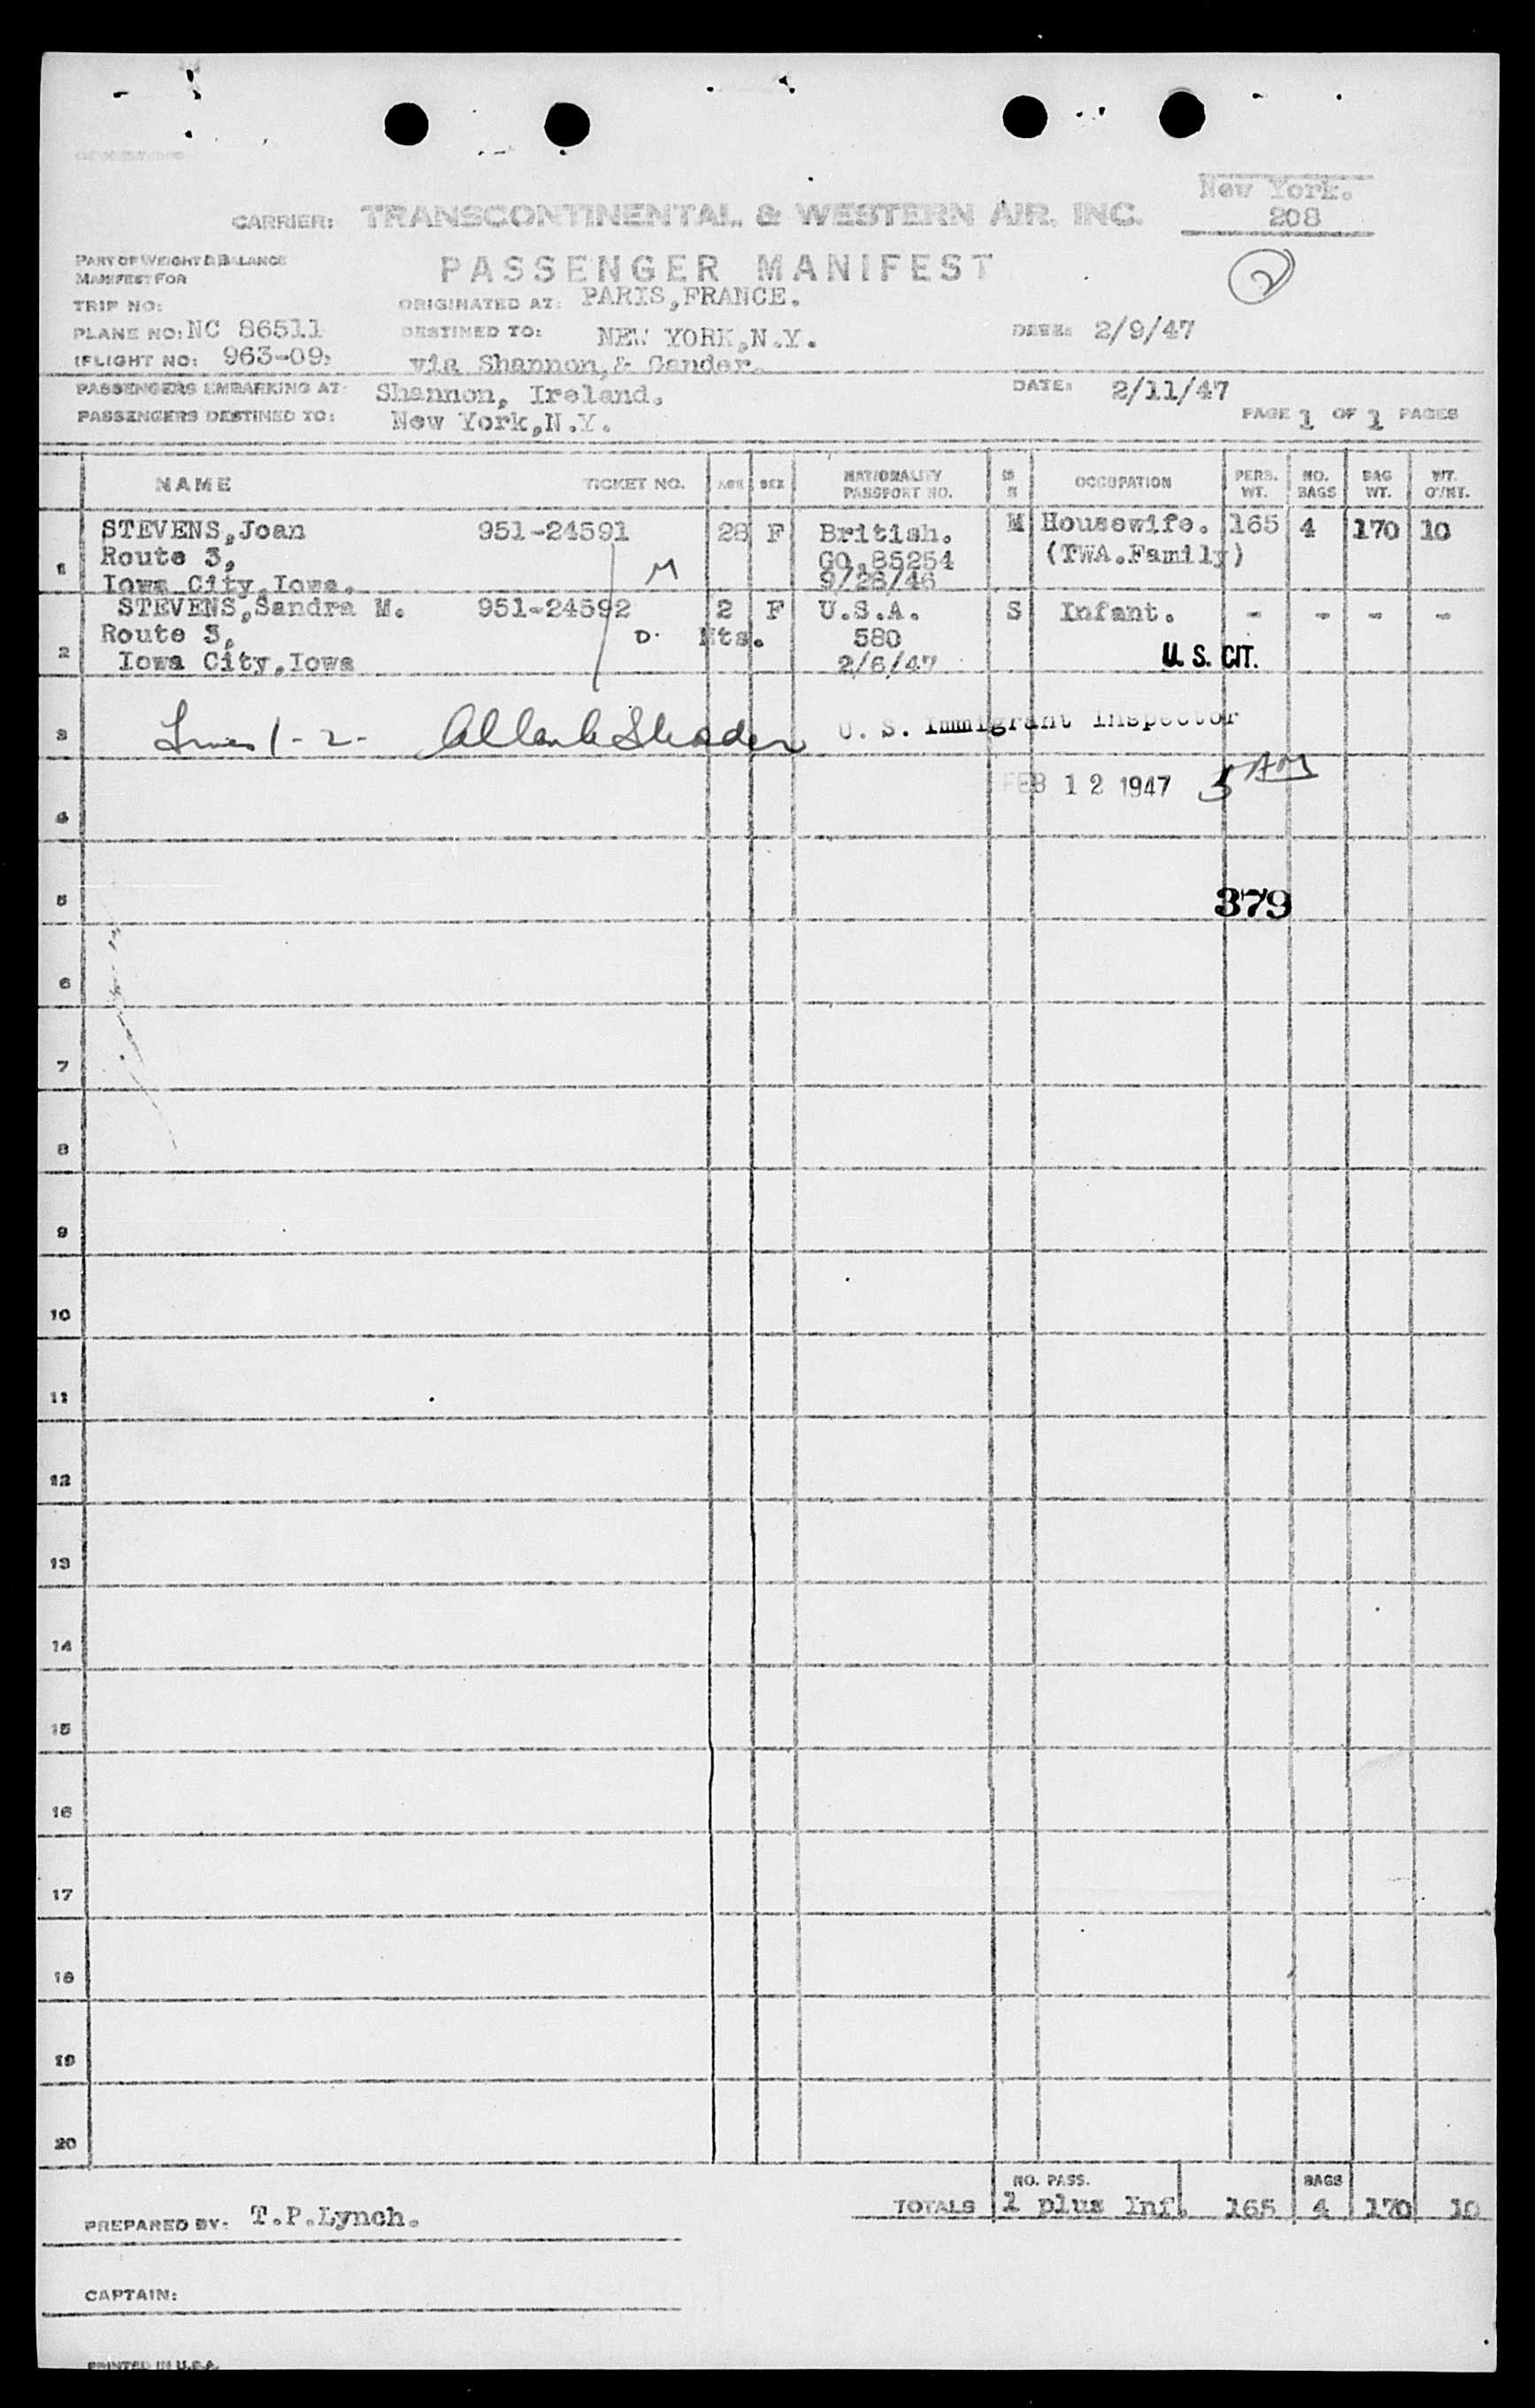 New York.
208
CARRIER: TRANSCONTINENTAL & WESTERN AIR, INC.
2
PART OF WEIGHT & BALANCE
MANIFEST FOR
PASSENGER MANIFEST
TRIP NO:
ORIGINATED AT: PARIS,FRANCE.
PLANE NO: NC 86511
DESTINED TO: NEW YORK,N.Y.
DATE: 2/9/47
FLIGHT NO: 963-09
via Shannon,& Gander.
PASSENGERS EMBARKING AT: Shannon, Ireland.
DATE: 2/11/47
PASSENGERS DESTINED TO: New York,N.Y.
PAGE 1 OF 1 PAGES
NAME TICKET NO. AGE SEX NATIONALITY PASSPORT NO. OCCUPATION PERS. WT. NO. BAGS BAG WT. WT. O'/NT.
1 STEVENS,Joan 951-24591 28 F British. M Housewife. 165 4 170 10
Route 3, GO.85254 (TWA.Family)
Iowa City,Iowa. M 9/28/46
2 STEVENS,Sandra M. 951-24592 2 F U.S.A. S Infant. - - - -
Route 3, D. Mts. 580
Iowa City,Iowa 2/6/47 U.S. CIT.
3 Lines 1-2- U. S. Immigrant Inspector
FEB 12 1947 5 AM
4
379
5
6
7
8
9
10
11
12
13
14
15
16
17
18
19
20
NO. PASS. BAGS
TOTALS 1 plus Inf. 165 4 170 10
PREPARED BY: T.P.Lynch.
CAPTAIN:
PRINTED IN U.S.A.